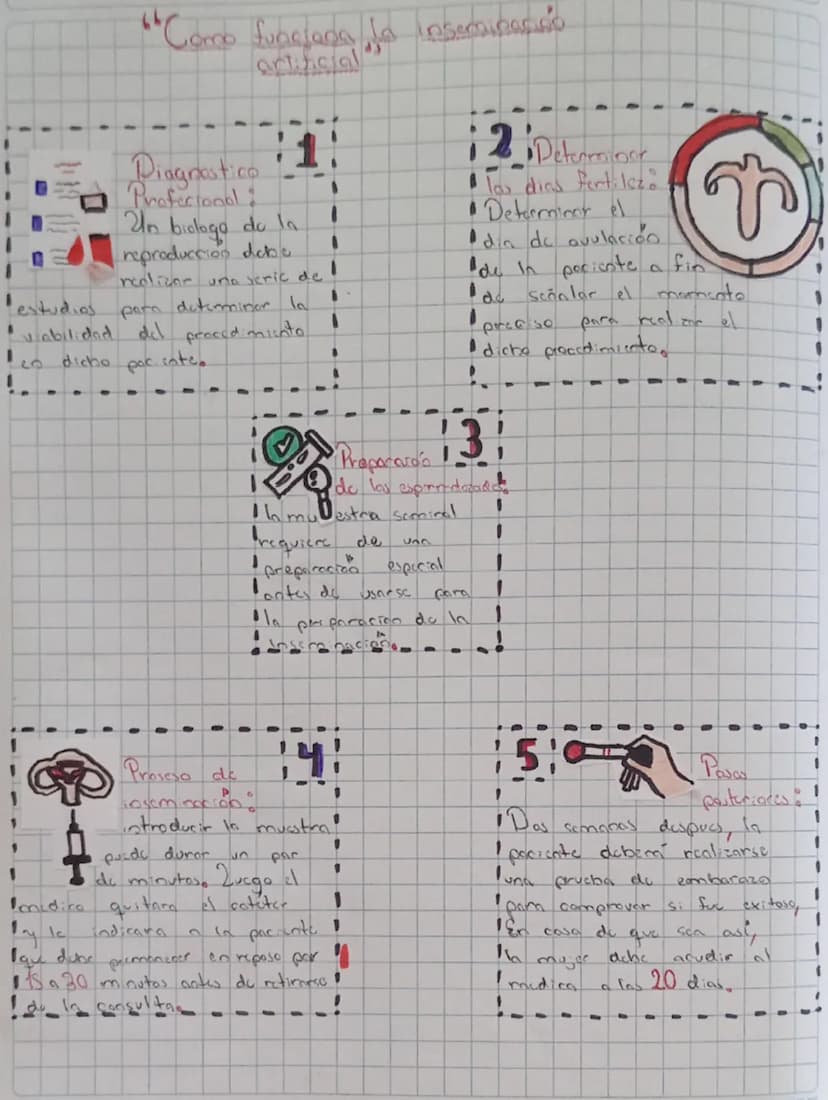 "Como funciona la inseminación
artificial"
1
Diagnostico
Profecional:
Un biologo de la
reproducción debe
realizar una serie de
estudios para determinar la
viabilidad del procedimiento
en dicho paciente.
2
Determinar
los dias fertilez:
Determinar el
dia de ovulación
de la paciente a fin
de señalar el momento
preciso para realizar el
dicho procedimiento.
3
Preparación
de los
la muestra seminal
requiere de una
preparación especial
antes de usarse para
la preparación de la
inseminación.
4
Proseso de
inseminación:
introducir la muestra
puede durar un par
de minutos. Luego el
medico quitara el catéter
y le indicara a la paciente
que debe permanecer en reposo por
15 a 30 minutos antes de retirarse
de la consulta.
5
Pasos
posteriores:
Dos semanas despues, la
paciente deberá realizarse
una prueba de embarazo
para comprovar si fue exitoso,
En caso de que sea así,
la mujer debe acudir al
medico a los 20 dias.